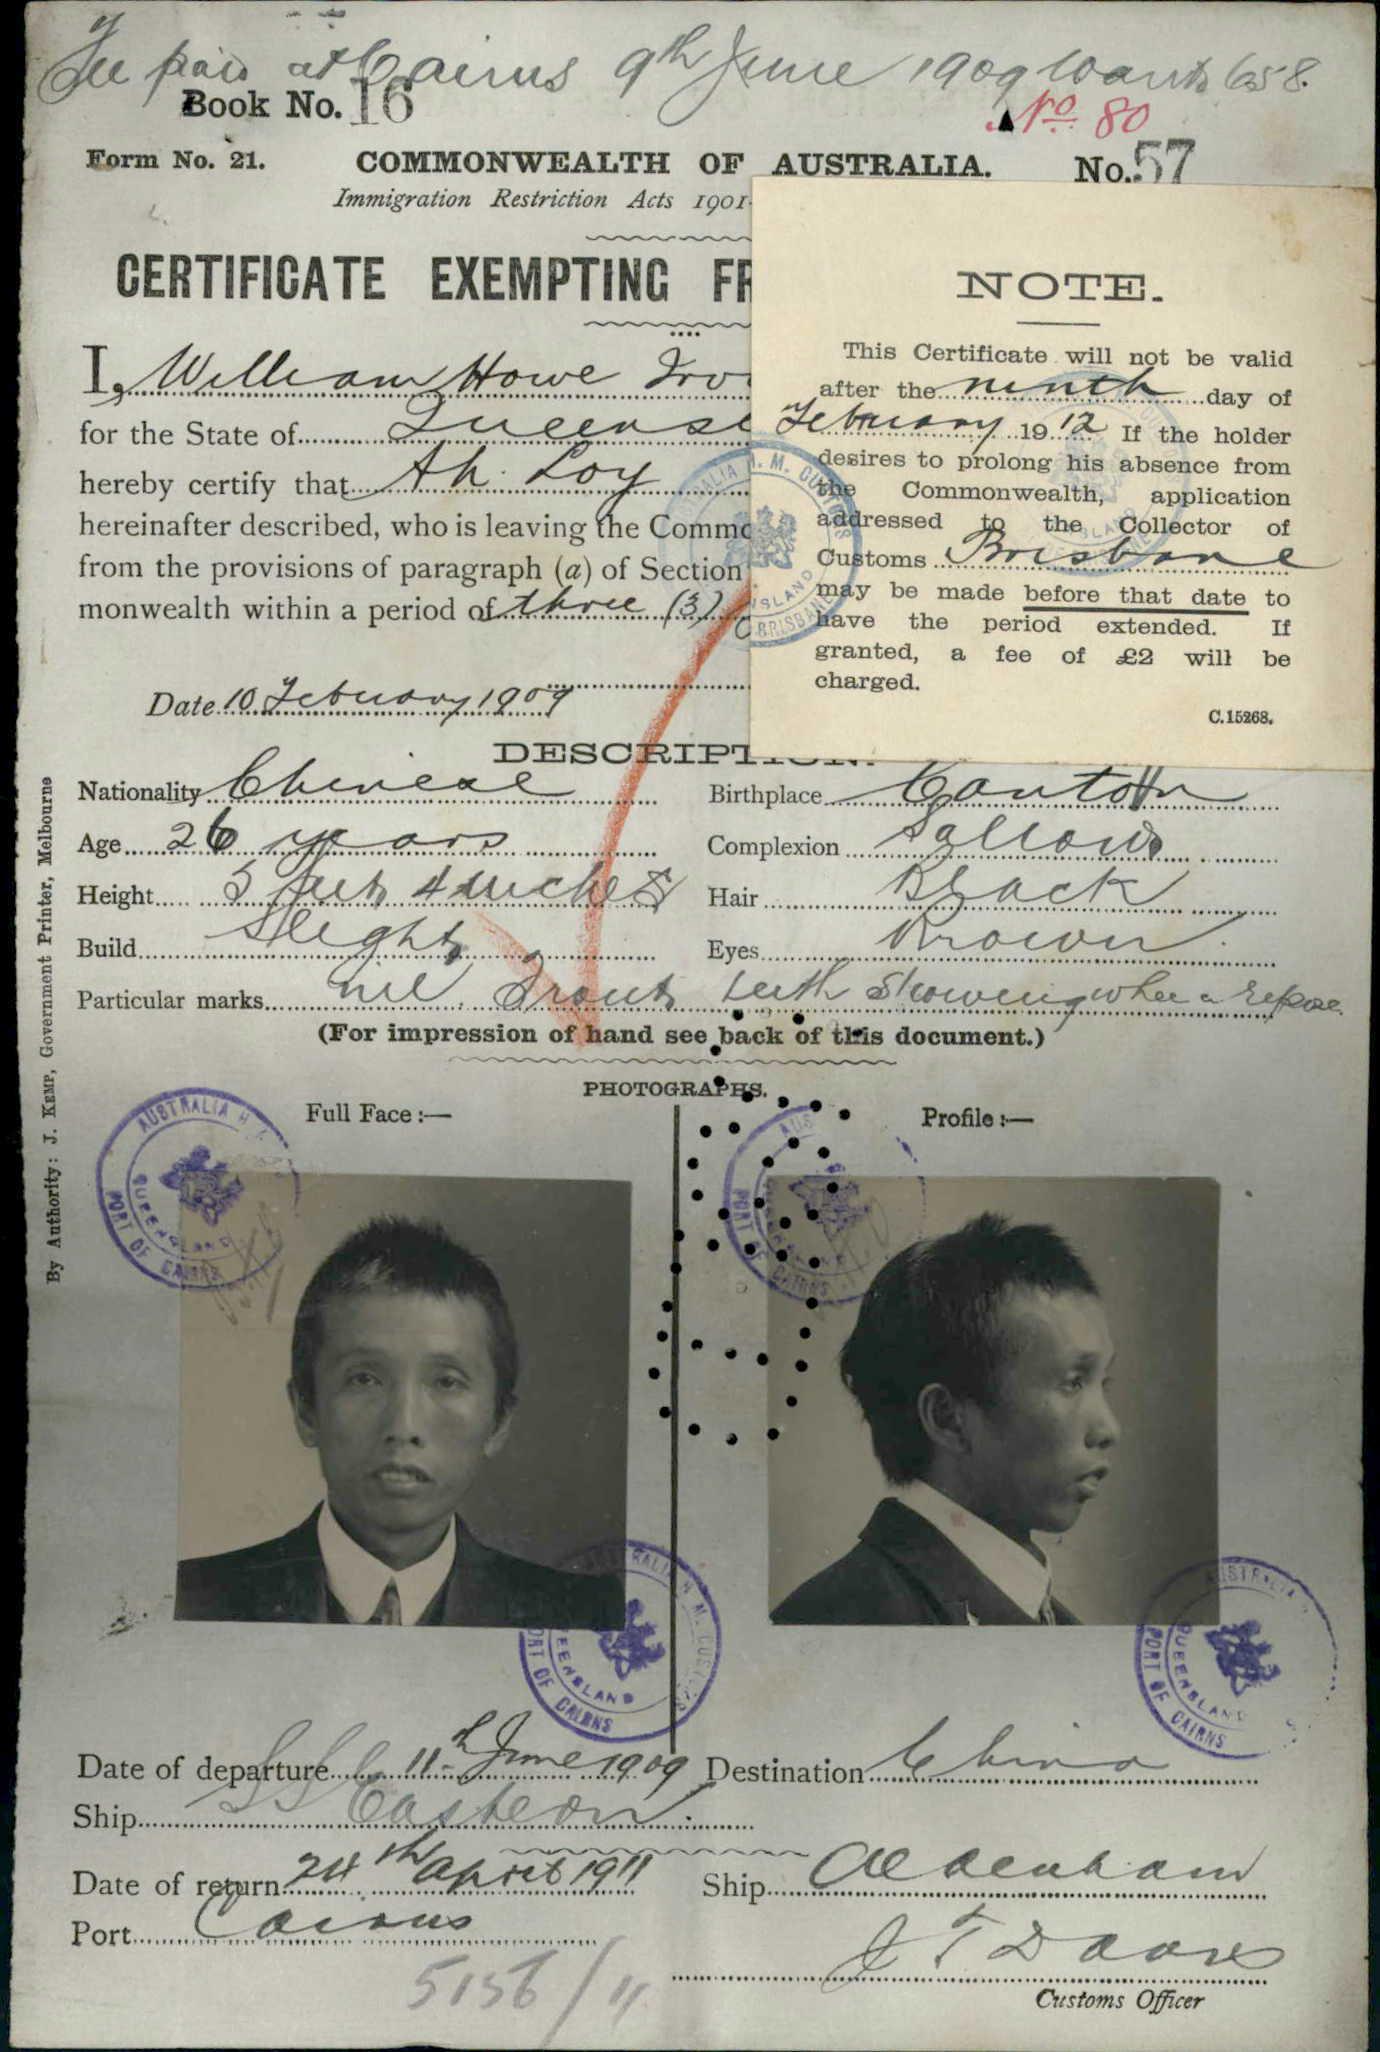 Fee paid at Cairns 9th June 1909 658
Book No. 16
No 80
Form No. 21. COMMONWEALTH OF AUSTRALIA. No. 57
Immigration Restriction Acts 1901-
CERTIFICATE EXEMPTING FR
I, William Howe Irv
for the State of Queensl
hereby certify that Ah Loy
hereinafter described, who is leaving the Commo
from the provisions of paragraph (a) of Section
monwealth within a period of three (3)
Date 10 February 1909
NOTE.
This Certificate will not be valid
after the ninth day of
February 1912 If the holder
desires to prolong his absence from
the Commonwealth, application
addressed to the Collector of
Customs Brisbane
may be made before that date to
have the period extended. If
granted, a fee of £2 will be
charged.
C.15268.
DESCRIPTION.
Nationality Chinese Birthplace Canton
Age 26 years Complexion Sallow
Height 5 feet 4 inches Hair Black
Build Slight Eyes Brown
Particular marks nil. Front teeth showing when in repose.
(For impression of hand see back of this document.)
PHOTOGRAPHS.
Full Face :— Profile :—
AUSTRALIA H
QUEENSLAND
PORT OF CAIRNS
AUS
PORT OF CAIRNS
AUSTRALIA H. M. CUSTOMS
QUEENSLAND
PORT OF CAIRNS
AUSTRALIA H
QUEENSLAND
PORT OF CAIRNS
By Authority: J. KEMP, Government Printer, Melbourne
Date of departure 11th June 1909 Destination China
Ship SS Eastern.
Date of return 24th April 1911 Ship Aldenham
Port Cairns
5156/11
Customs Officer